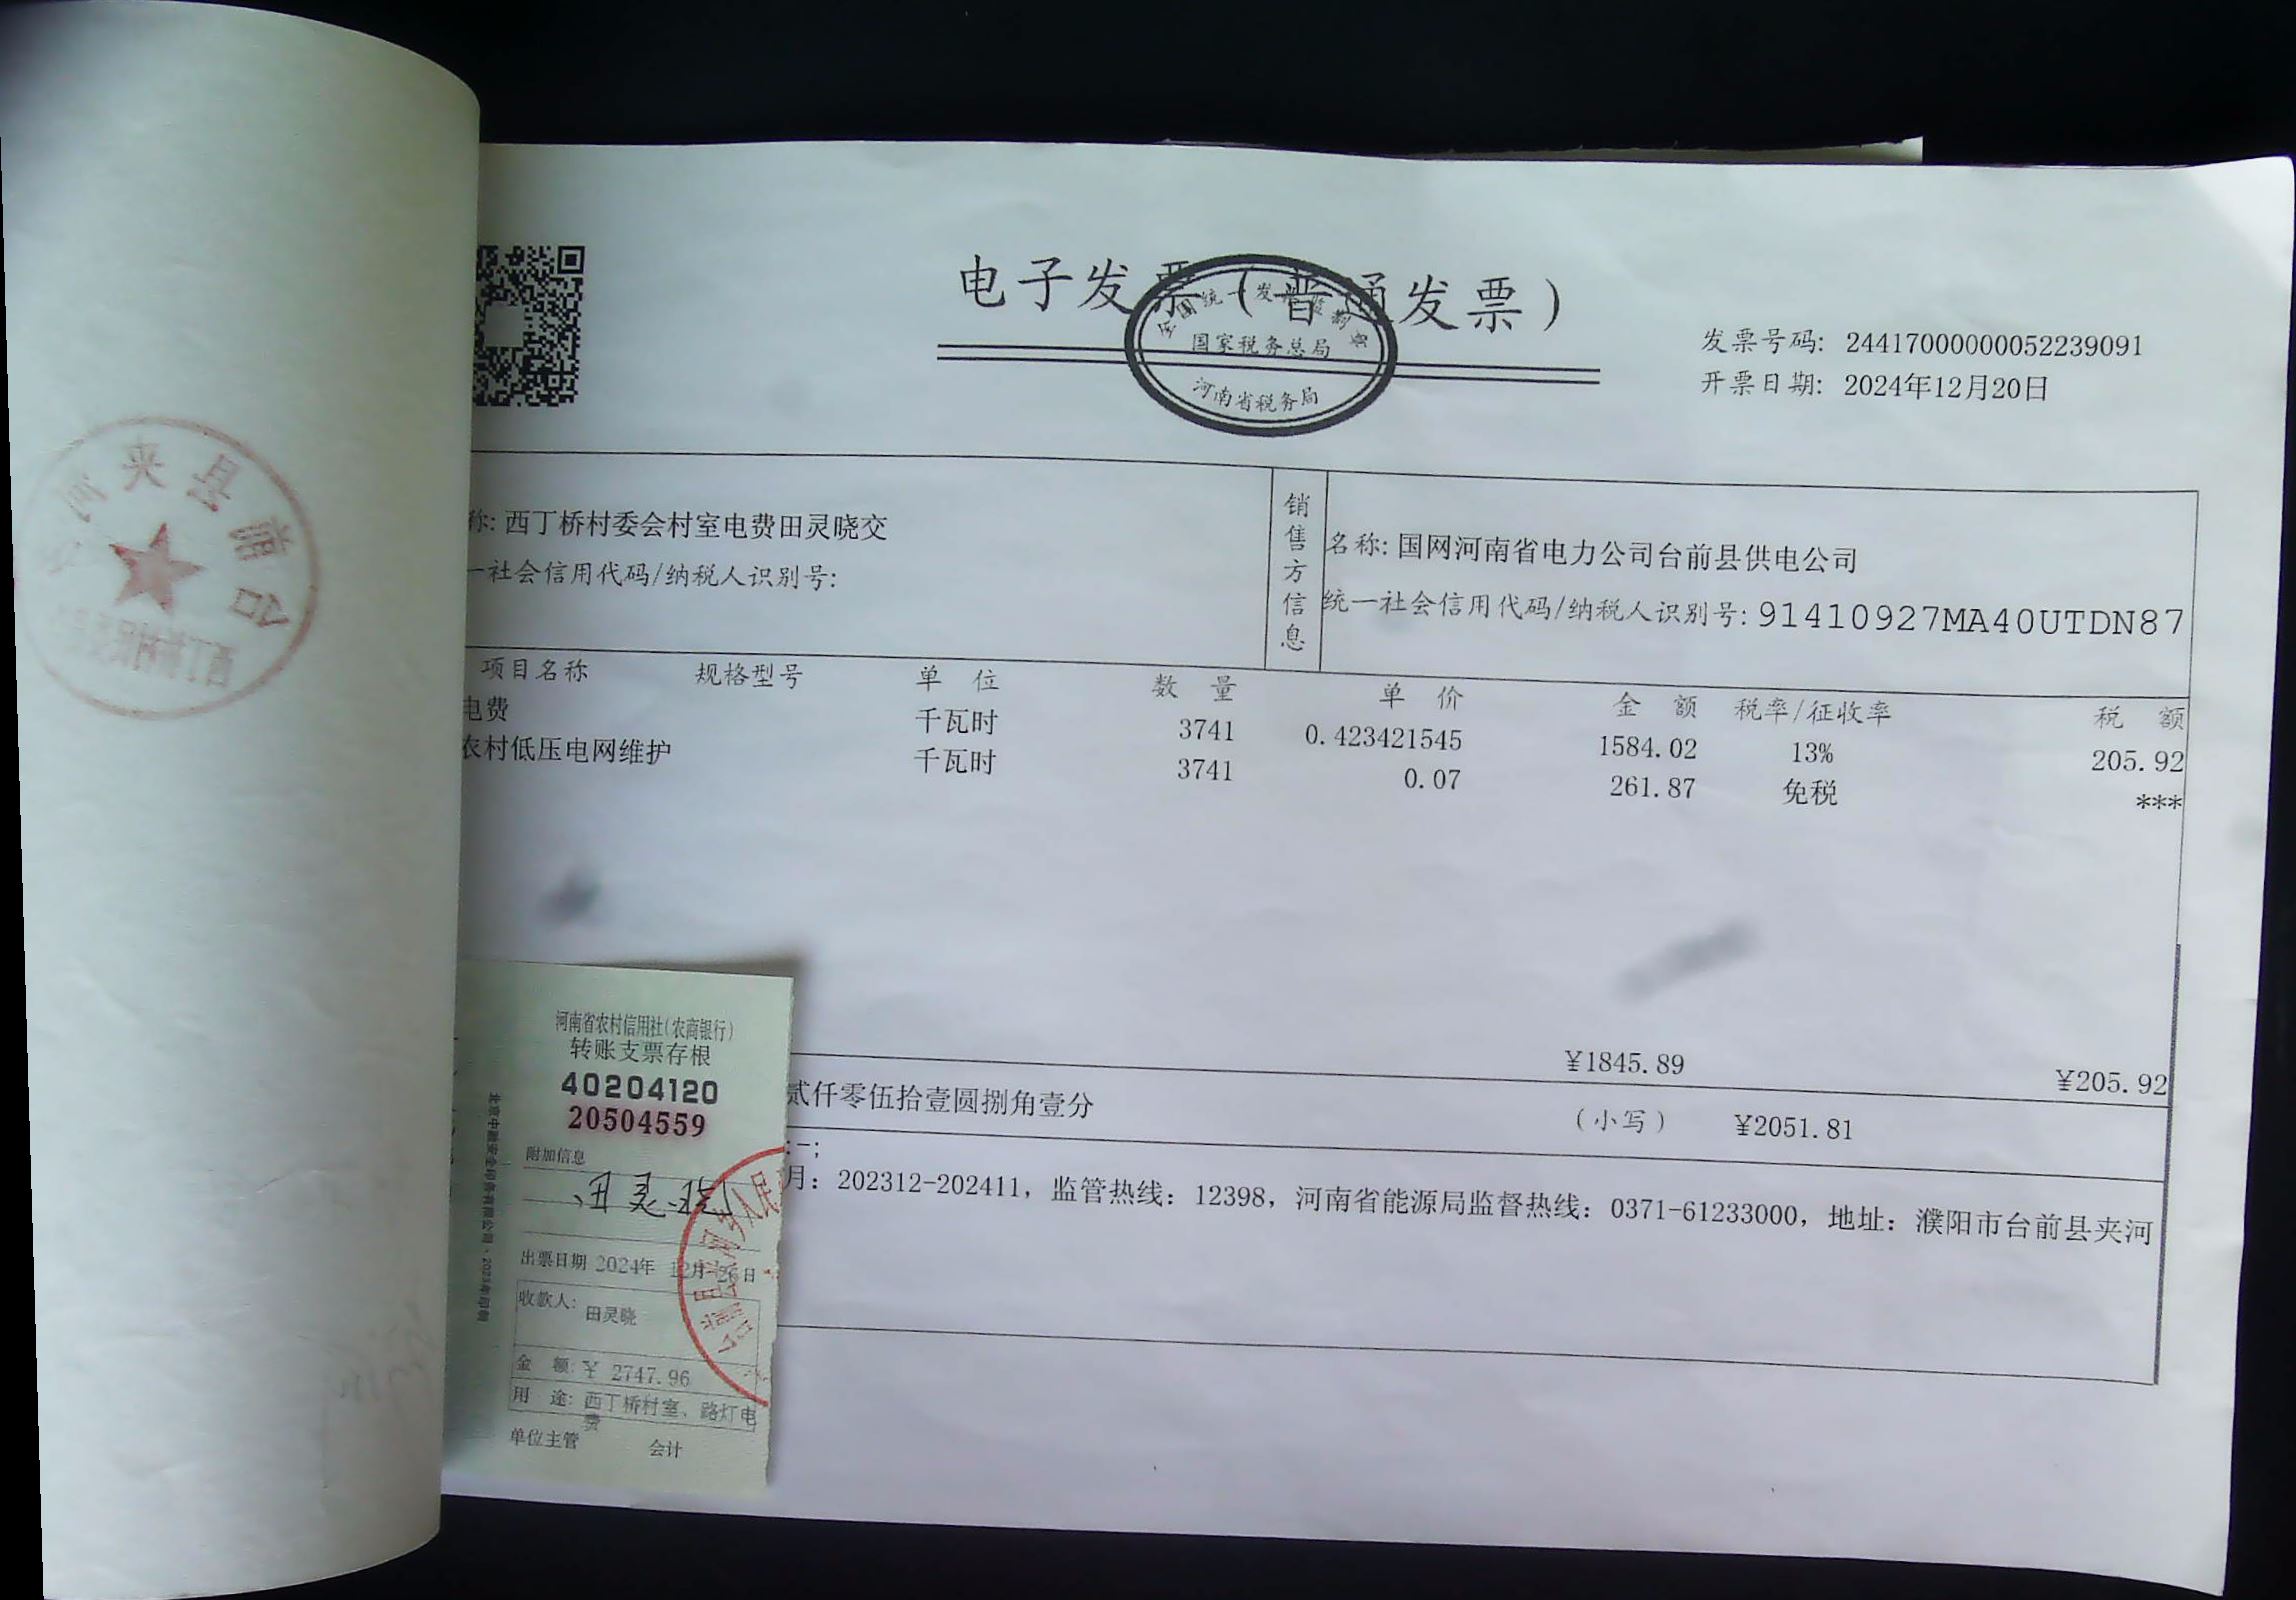 电子发票（普通发票）
全国统一发票监制章
国家税务总局
河南省税务局
发票号码: 24417000000052239091
开票日期: 2024年12月20日
称: 西丁桥村委会村室电费田灵晓交
一社会信用代码/纳税人识别号:
销售方信息
名称: 国网河南省电力公司台前县供电公司
统一社会信用代码/纳税人识别号: 91410927MA40UTDN87
项目名称 规格型号 单 位 数 量 单 价 金 额 税率/征收率 税 额
电费 千瓦时 3741 0.423421545 1584.02 13% 205.92
农村低压电网维护 千瓦时 3741 0.07 261.87 免税 ***
¥1845.89 ¥205.92
贰仟零伍拾壹圆捌角壹分 （小写） ¥2051.81
:-;
月: 202312-202411, 监管热线: 12398, 河南省能源局监督热线: 0371-61233000, 地址: 濮阳市台前县夹河
河南省农村信用社(农商银行)
转账支票存根
40204120
20504559
附加信息
田灵晓
出票日期 2024年 12月 26日
收款人: 田灵晓
金 额: ¥ 2747.96
用 途: 西丁桥村室、路灯电
费
单位主管 会计
台前县夹河乡人民
台前县夹河
西丁桥村